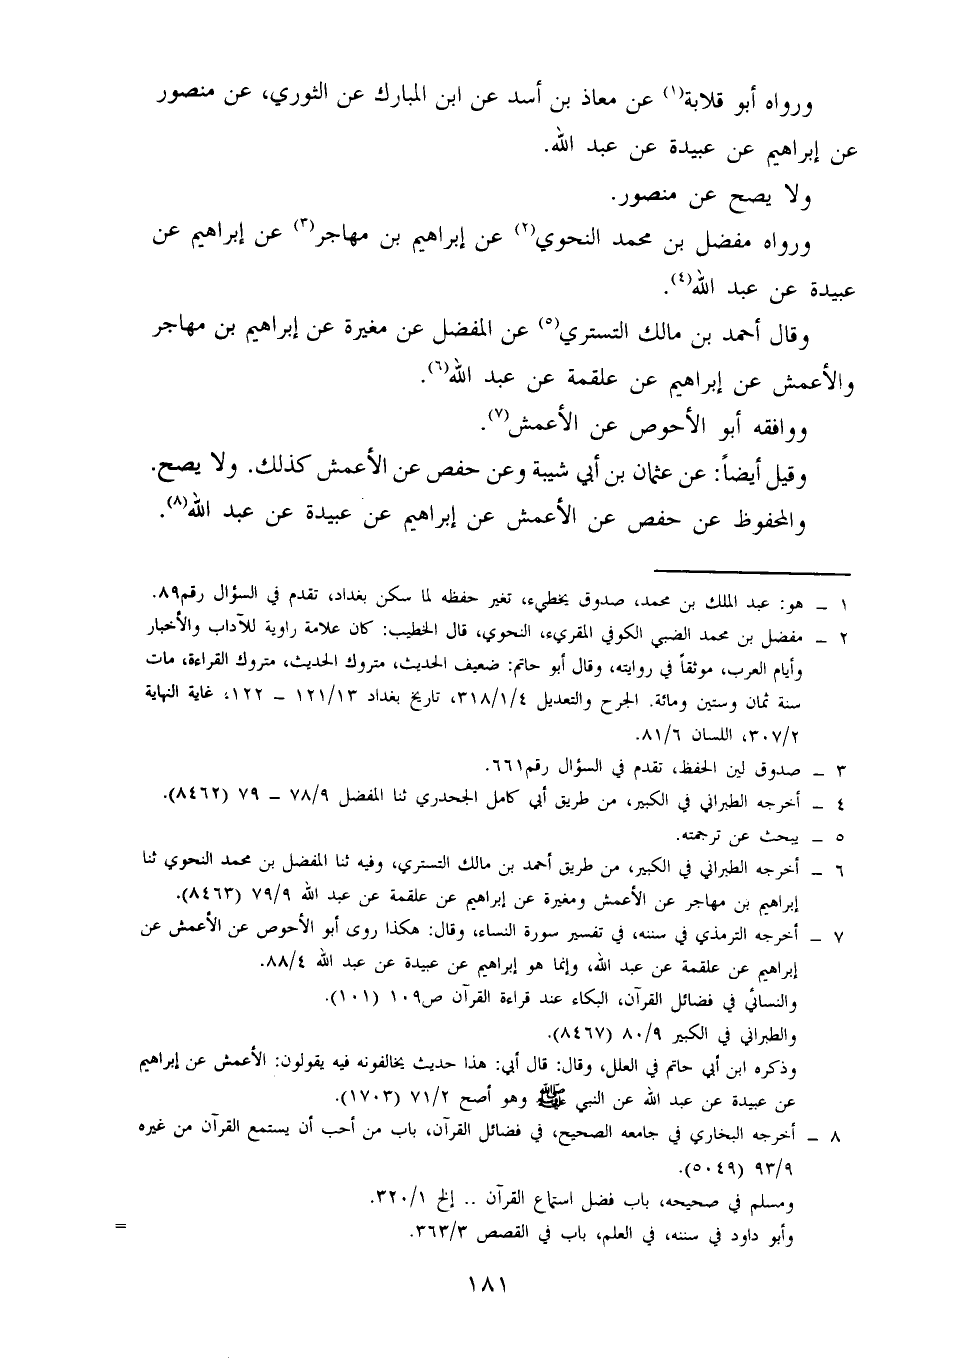 ورواه أبو قلابة(١) عن معاذ بن أسد عن ابن المبارك عن الثوري، عن منصور
عن إبراهيم عن عبيدة عن عبد الله.
ولا يصح عن منصور.
ورواه مفضل بن محمد النحوي(٢) عن إبراهيم بن مهاجر(٣) عن إبراهيم عن
عبيدة عن عبد الله(٤).
وقال أحمد بن مالك التستري(٥) عن المفضل عن مغيرة عن إبراهيم بن مهاجر
والأعمش عن إبراهيم عن علقمة عن عبد الله(٦).
ووافقه أبو الأحوص عن الأعمش(٧).
وقيل أيضاً: عن عثمان بن أبي شيبة وعن حفص عن الأعمش كذلك. ولا يصح.
والمحفوظ عن حفص عن الأعمش عن إبراهيم عن عبيدة عن عبد الله(٨).
١ ـ هو: عبد الملك بن محمد، صدوق يخطيء، تغير حفظه لما سكن بغداد، تقدم في السؤال رقم٨٩.
٢ ـ مفضل بن محمد الضبي الكوفي المقريء، النحوي، قال الخطيب: كان علامة راوية للآداب والأخبار
وأيام العرب، موثقاً في روايته، وقال أبو حاتم: ضعيف الحديث، متروك الحديث، متروك القراءة، مات
سنة ثمان وستين ومائة. الجرح والتعديل ٣١٨/١/٤، تاريخ بغداد ١٢١/١٣ ـ ١٢٢، غاية النهاية
٣٠٧/٢، اللسان ٨١/٦.
٣ ـ صدوق لين الحفظ، تقدم في السؤال رقم٦٦١.
٤ ـ أخرجه الطبراني في الكبير، من طريق أبي كامل الجحدري ثنا المفضل ٧٨/٩ ـ ٧٩ (٨٤٦٢).
٥ ـ يبحث عن ترجمته.
٦ ـ أخرجه الطبراني في الكبير، من طريق أحمد بن مالك التستري، وفيه ثنا المفضل بن محمد النحوي ثنا
إبراهيم بن مهاجر عن الأعمش ومغيرة عن إبراهيم عن علقمة عن عبد الله ٧٩/٩ (٨٤٦٣).
٧ ـ أخرجه الترمذي في سننه، في تفسير سورة النساء، وقال: هكذا روى أبو الأحوص عن الأعمش عن
إبراهيم عن علقمة عن عبد الله، وإنما هو إبراهيم عن عبيدة عن عبد الله ٨٨/٤.
والنسائي في فضائل القرآن، البكاء عند قراءة القرآن ص١٠٩ (١٠١).
والطبراني في الكبير ٨٠/٩ (٨٤٦٧).
وذكره ابن أبي حاتم في العلل، وقال: قال أبي: هذا حديث يخالفونه فيه يقولون: الأعمش عن إبراهيم
عن عبيدة عن عبد الله عن النبي ﷺ وهو أصح ٧١/٢ (١٧٠٣).
٨ ـ أخرجه البخاري في جامعه الصحيح، في فضائل القرآن، باب من أحب أن يستمع القرآن من غيره
٩٣/٩ (٥٠٤٩).
ومسلم في صحيحه، باب فضل استماع القرآن .. إلخ ٣٢٠/١.
وأبو داود في سننه، في العلم، باب في القصص ٣٦٣/٣.
=
١٨١